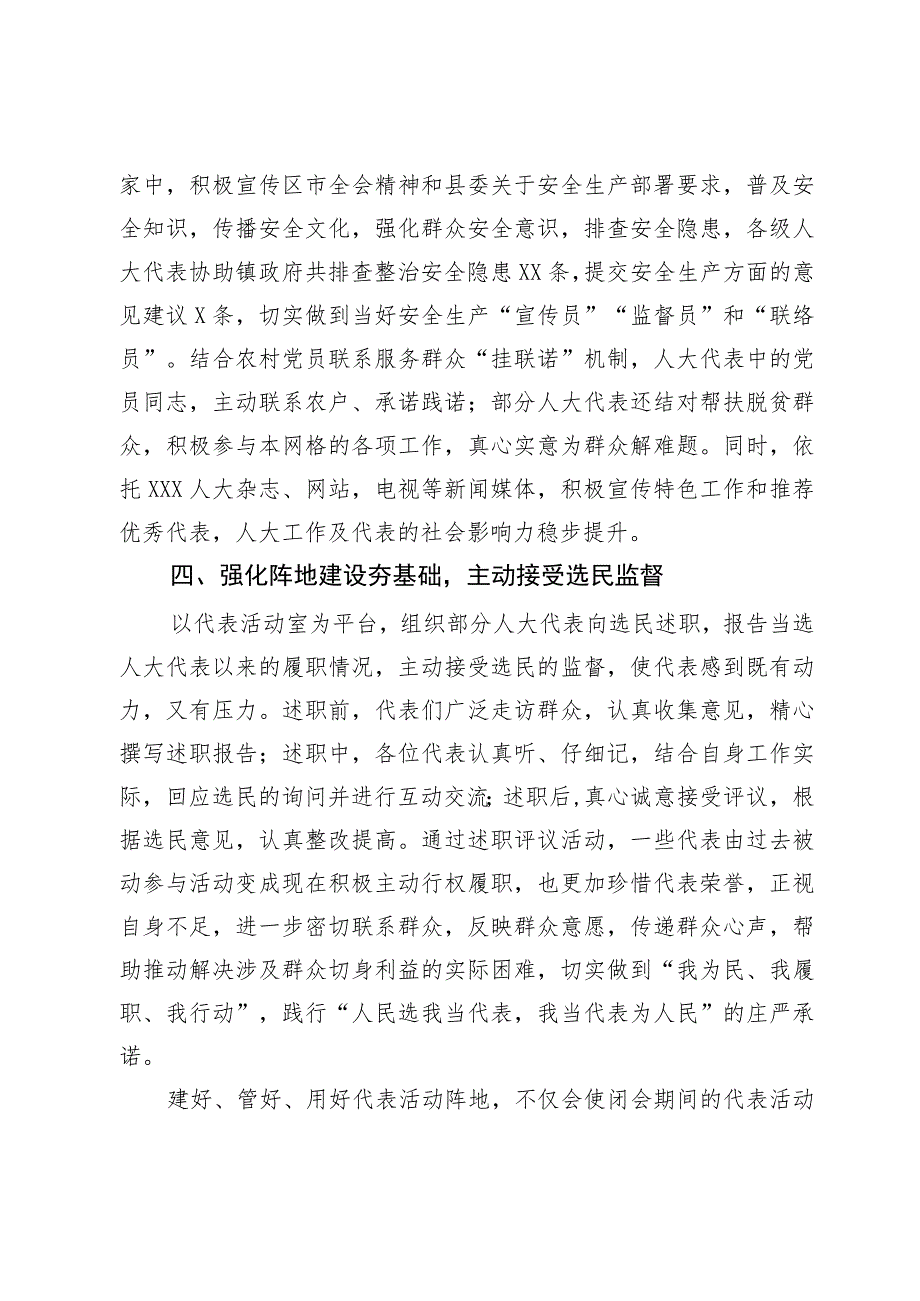 家中，积极宣传区市全会精神和县委关于安全生产部署要求，普及安
全知识，传播安全文化，强化群众安全意识，排查安全隐患，各级人
大代表协助镇政府共排查整治安全隐患 XX 条，提交安全生产方面的意
见建议 X 条，切实做到当好安全生产“宣传员”“监督员”和“联络
员”。结合农村党员联系服务群众“挂联诺”机制，人大代表中的党
员同志，主动联系农户、承诺践诺；部分人大代表还结对帮扶脱贫群
众，积极参与本网格的各项工作，真心实意为群众解难题。同时，依
托 XXX 人大杂志、网站，电视等新闻媒体，积极宣传特色工作和推荐
优秀代表，人大工作及代表的社会影响力稳步提升。
四、强化阵地建设夯基础，主动接受选民监督
以代表活动室为平台，组织部分人大代表向选民述职，报告当选
人大代表以来的履职情况，主动接受选民的监督，使代表感到既有动
力，又有压力。述职前，代表们广泛走访群众，认真收集意见，精心
撰写述职报告；述职中，各位代表认真听、仔细记，结合自身工作实
际，回应选民的询问并进行互动交流；述职后,真心诚意接受评议，根
据选民意见，认真整改提高。通过述职评议活动，一些代表由过去被
动参与活动变成现在积极主动行权履职，也更加珍惜代表荣誉，正视
自身不足，进一步密切联系群众，反映群众意愿，传递群众心声，帮
助推动解决涉及群众切身利益的实际困难，切实做到“我为民、我履
职、我行动”，践行“人民选我当代表，我当代表为人民”的庄严承
诺。
建好、管好、用好代表活动阵地，不仅会使闭会期间的代表活动